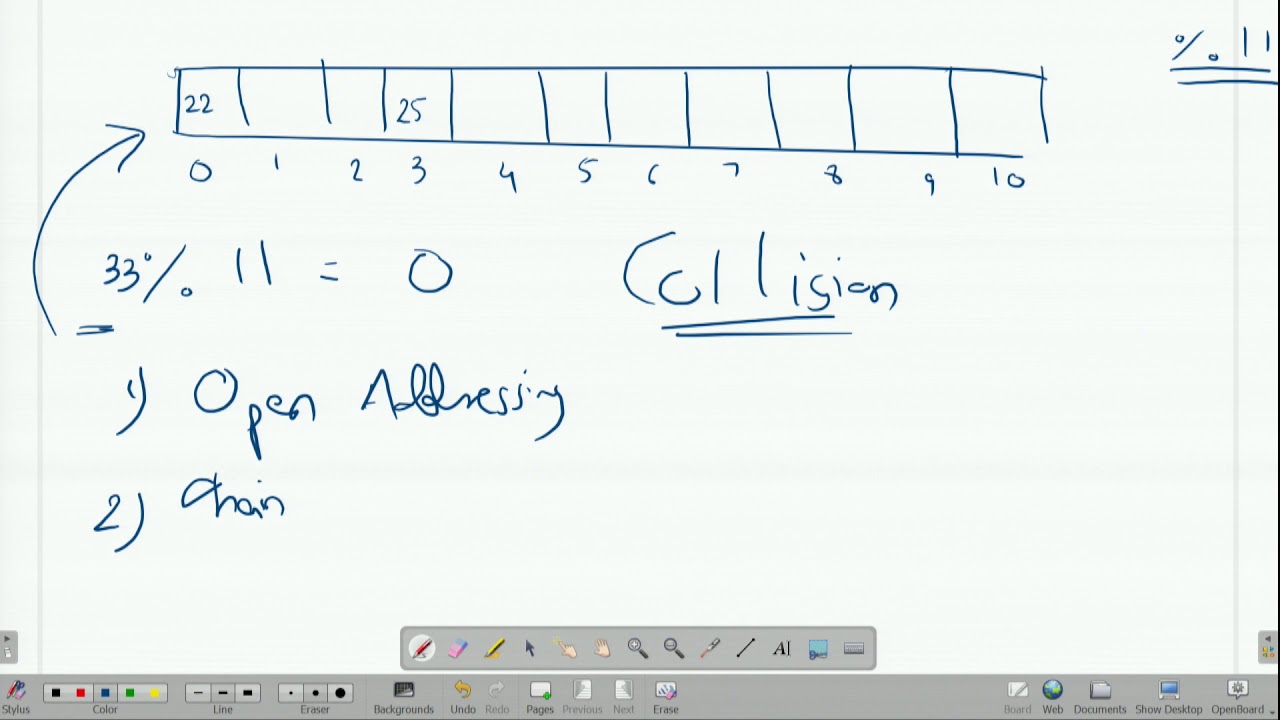 % 11
22 25
0 1 2 3 4 5 6 7 8 9 10
33 % 11 = 0 Collision
1) Open Addressing
2) Chain
Stylus Color Line Eraser Backgrounds Undo Redo Pages Previous Next Erase Board Web Documents Show Desktop OpenBoard